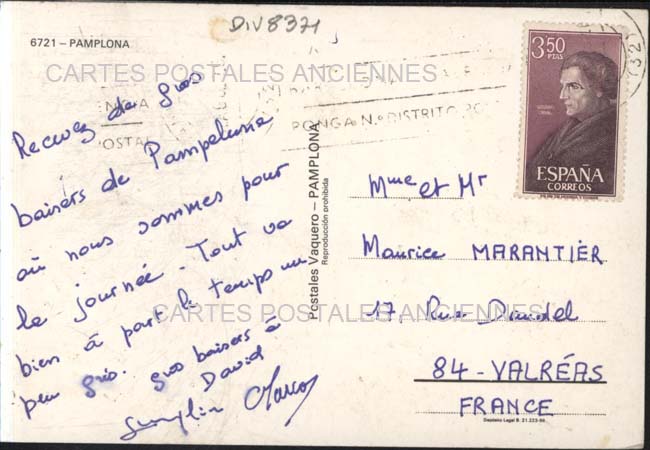 DIV 8371
6721 – PAMPLONA
CARTES POSTALES ANCIENNES
Recevez de gros
baisers de Pampelune
où nous sommes pour
la journée. Tout va
bien à part le temps un
peu gris. gros baisers à
David
PONGA N.º DISTRITO PO
Postales Vaquero – PAMPLONA
Reproducción prohibida
3,50
PTAS
ESPAÑA
CORREOS
(32)
Mme et Mr
Maurice MARANTIER
17, Rue
CARTES POSTALES ANCIENNES
84 - VALRÉAS
FRANCE
Depósito Legal B. 21.223-66